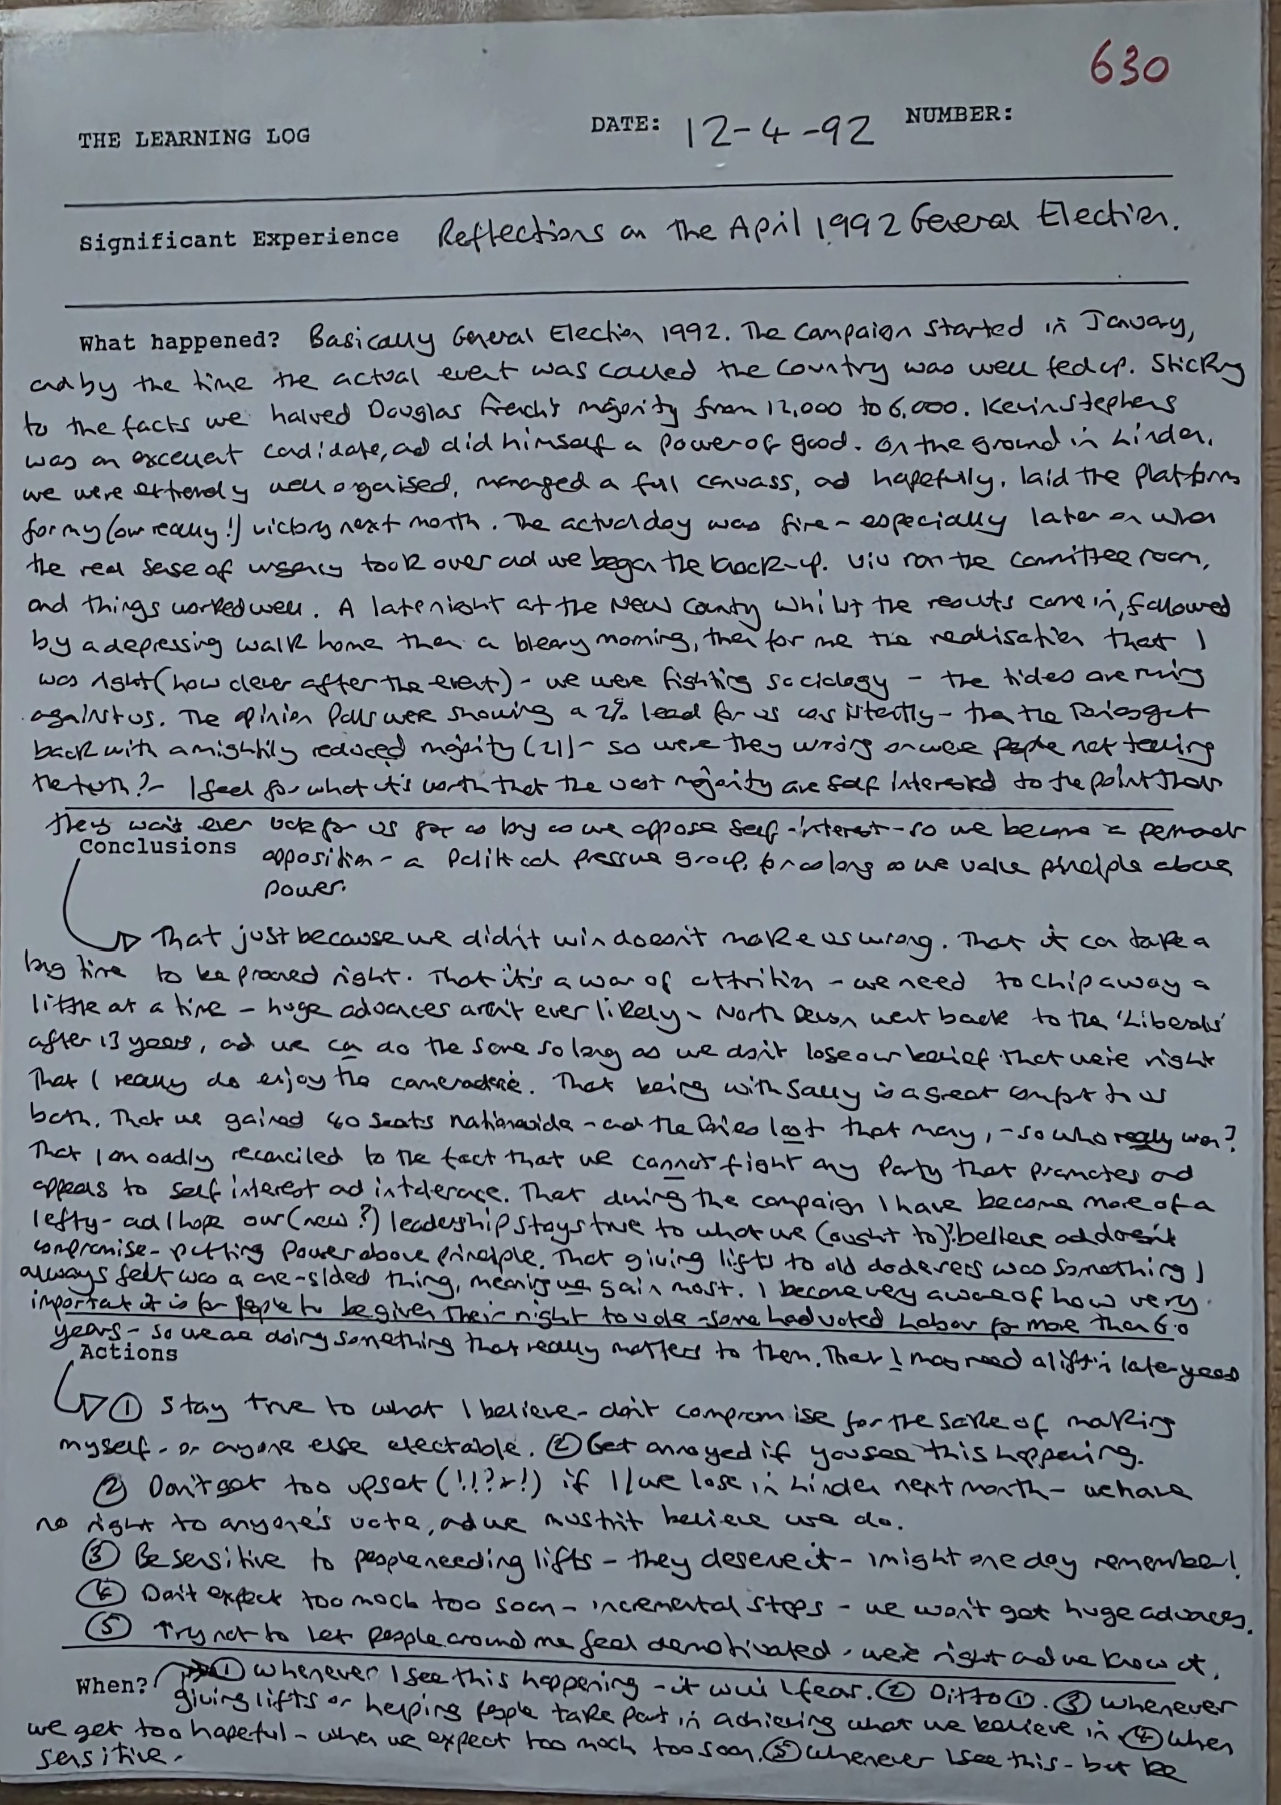 630
THE LEARNING LOG DATE: 12-4-92 NUMBER:
Significant Experience Reflections on the April 1992 General Election.
What happened? Basically General Election 1992. The campaign started in January,
and by the time the actual event was called the country was well fed up. Sticking
to the facts we halved Douglas French's majority from 12,000 to 6,000. Kevin Stephens
was an excellent candidate, and did himself a power of good. On the ground in Linden,
we were extremely well organised, managed a full canvass, and hopefully, laid the platform
for my (our really!) victory next month. The actual day was fine - especially later on when
the real sense of urgency took over and we began the knock-up. Viv ran the committee room,
and things worked well. A late night at the New County whilst the results came in, followed
by a depressing walk home then a bleary morning, then for me the realisation that I
was right (how clever after the event) - we were fighting sociology - the tides are running
against us. The opinion polls were showing a 2% lead for us consistently - then the Tories get
back with a mightily reduced majority (21) - so were they wrong or were people not telling
the truth? - I feel for what it's worth that the vast majority are self interested to the point that
they won't ever vote for us for as long as we oppose self-interest - so we become a permanent
Conclusions opposition - a political pressure group, for as long as we value principle above
power.
That just because we didn't win doesn't make us wrong. That it can take a
long time to be proved right. That it's a war of attrition - we need to chip away a
little at a time - huge advances aren't ever likely - North Devon went back to the 'Liberals'
after 13 years, and we can do the same so long as we don't lose our belief that we're right
That I really do enjoy the cameraderie. That being with Sally is a great comfort to us
both. That we gained 40 seats nationwide - and the Tories lost that many, - so who really won?
That I am sadly reconciled to the fact that we cannot fight any Party that promotes and
appeals to self interest and intolerance. That during the campaign I have become more of a
lefty - and I hope our (new?) leadership stays true to what we (ought to)? believe and doesn't
compromise - putting power above principle. That giving lifts to old dodderers was something I
always felt was a one-sided thing, meaning we gain most. I became very aware of how very
important it is for people to be given their right to vote - some had voted Labour for more than 60
years - so we are doing something that really matters to them. That I may need a lift in later years
Actions
① Stay true to what I believe - don't compromise for the sake of making
myself - or anyone else electable. ② Get annoyed if you see this happening.
② Don't get too upset (!!?*!) if I/we lose in Linden next month - we have
no right to anyone's vote, and we mustn't believe we do.
③ Be sensitive to people needing lifts - they deserve it - I might one day remember!
④ Don't expect too much too soon - incremental steps - we won't get huge advances.
⑤ Try not to let people around me feel demotivated, we're right and we know it.
When? ① Whenever I see this happening - it will I fear. ② Ditto ①. ③ Whenever
giving lifts or helping people take part in achieving what we believe in ④ When
we get too hopeful - when we expect too much too soon. ⑤ Whenever I see this - but be
sensitive.